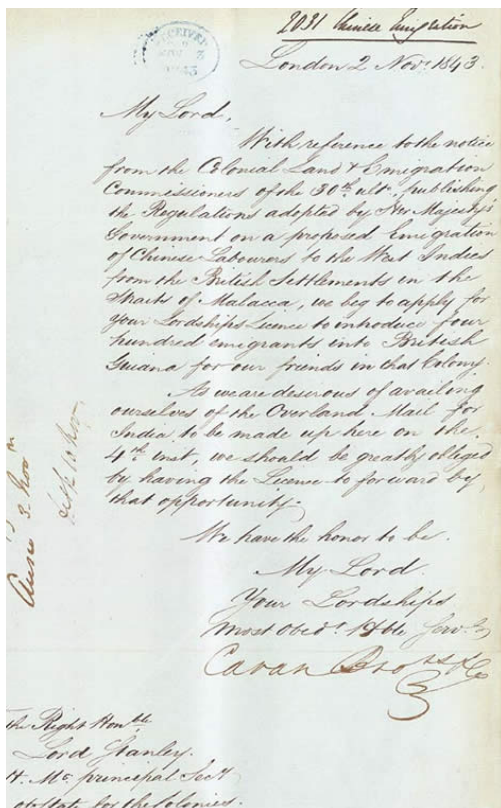 2031 Chinese Emigration
RECEIVED
London 2 Novr. 1843.
My Lord,
With reference to the notice
from the Colonial Land & Emigration
Commissioners of the 30th. ult., publishing
the Regulations adopted by Her Majesty's
Government on a proposed Emigration
of Chinese Labourers to the West Indies
from the British Settlements in the
Straits of Malacca, we beg to apply for
Your Lordships Licence to introduce four
hundred emigrants into British
Guiana for our friends in that Colony.
As we are desirous of availing
ourselves of the Overland Mail for
India to be made up here on the
4th. inst, we should be greatly obliged
by having the Licence to forward by
that opportunity.
We have the honor to be.
My Lord.
Your Lordships
most obedt. Hble Servts.
Cavan Brors & Co
Ansd 3. Novr
The Right Honble
Lord Stanley.
H. Ms. principal Secy
of State for the Colonies.